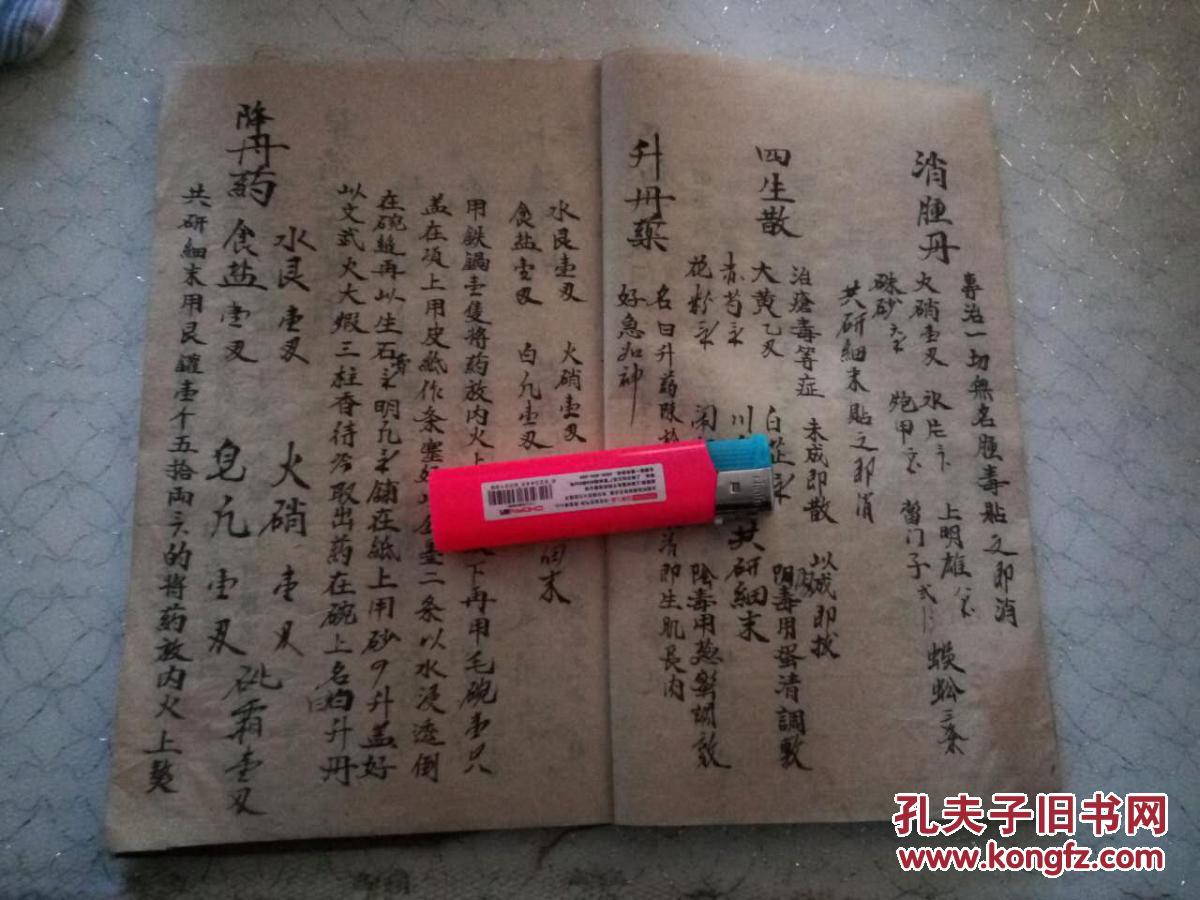 消腫丹
專治一切無名腫毒貼之即消
火硝壹刄 氷片 上明雄 蜈蚣三条
硃砂 炮甲 當门子弍
共研細末貼之即消
四生散
治瘡毒等症 未成即散 以成即拔
大黄乙刄 白芷 陽毒用蛋清調敷
赤芍 川 共研細末
花粉 陰毒用葱蜜調敷
升丹藥
名曰升药陈 清即生肌長肉
好急如神
水艮壹刄 火硝壹刄
食盐壹刄 白凡壹刄 細末
用鉄鍋壹隻將药放内火上 下再用毛碗壹只
盖在項上用皮紙作条塞好 二条以水浸透倒
在碗縫再以生石膏 明凡 鋪在紙上用砂 升盖好
以文武火大煅三柱香待冷取出药在碗上名曰白升丹
降丹药
水艮壹刄 火硝壹刄
食盐壹刄 皂凡壹刄 砒霜壹刄
共研細末用艮罐壹千五拾两 的將药放内火上熬
孔夫子旧书网
www.kongfz.com